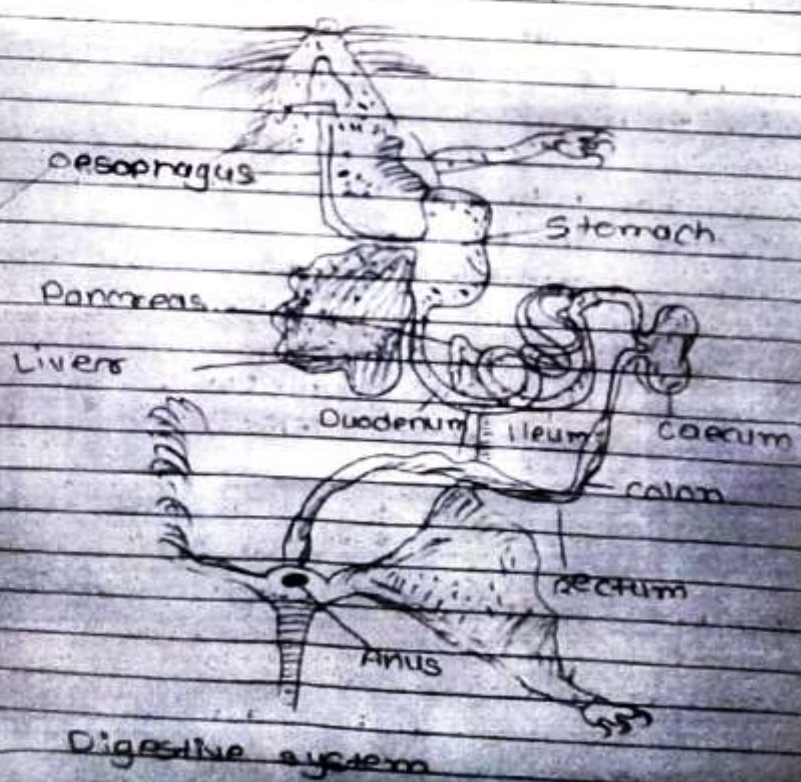 oesopragus
Stomach
Pancreas
Liver
Duodenum
ileum
Caecum
colon
Rectum
Anus
Digestive system